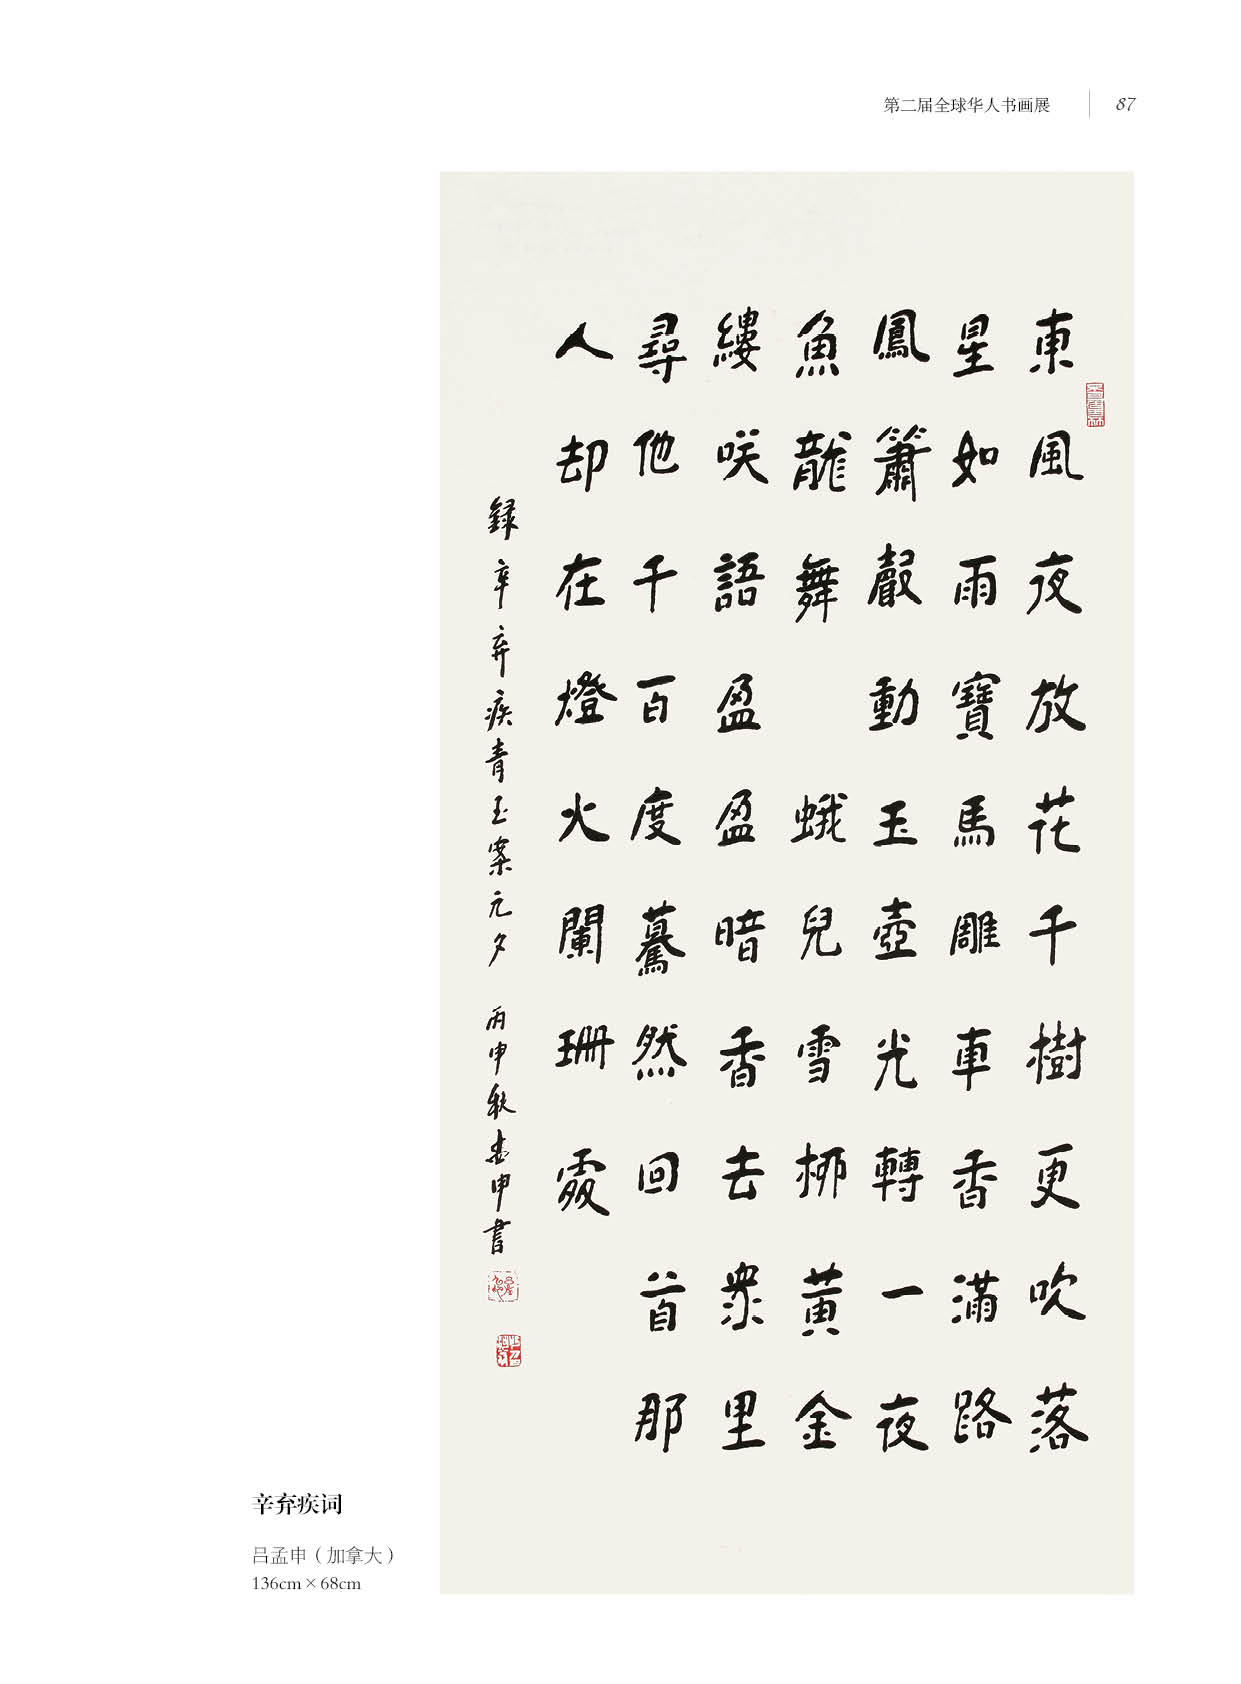 第二届全球华人书画展 87
東風夜放花千樹更吹落
星如雨寶馬雕車香滿路
鳳簫聲動玉壺光轉一夜
魚龍舞 蛾兒雪柳黃金
縷咲語盈盈暗香去衆里
尋他千百度驀然回首那
人却在燈火闌珊處
録辛弃疾青玉案元夕 丙申秋孟申書
辛弃疾词
吕孟申（加拿大）
136cm×68cm